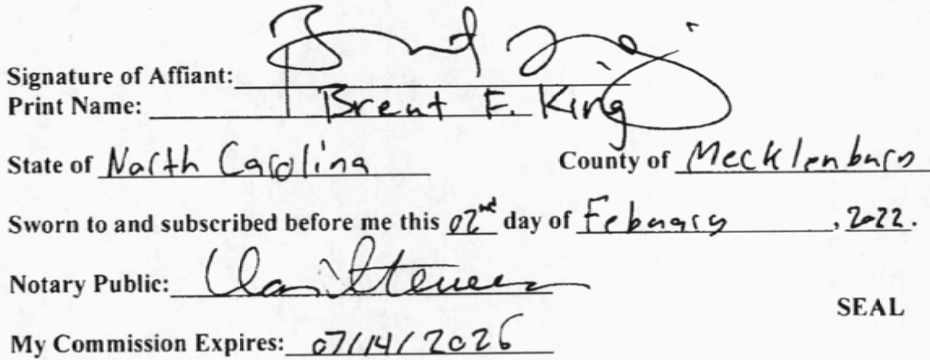 Signature of Affiant:
Print Name: Brent F. King
State of North Carolina County of Mecklenburg
Sworn to and subscribed before me this 02nd day of February, 2022.
Notary Public:
SEAL
My Commission Expires: 07/14/2026